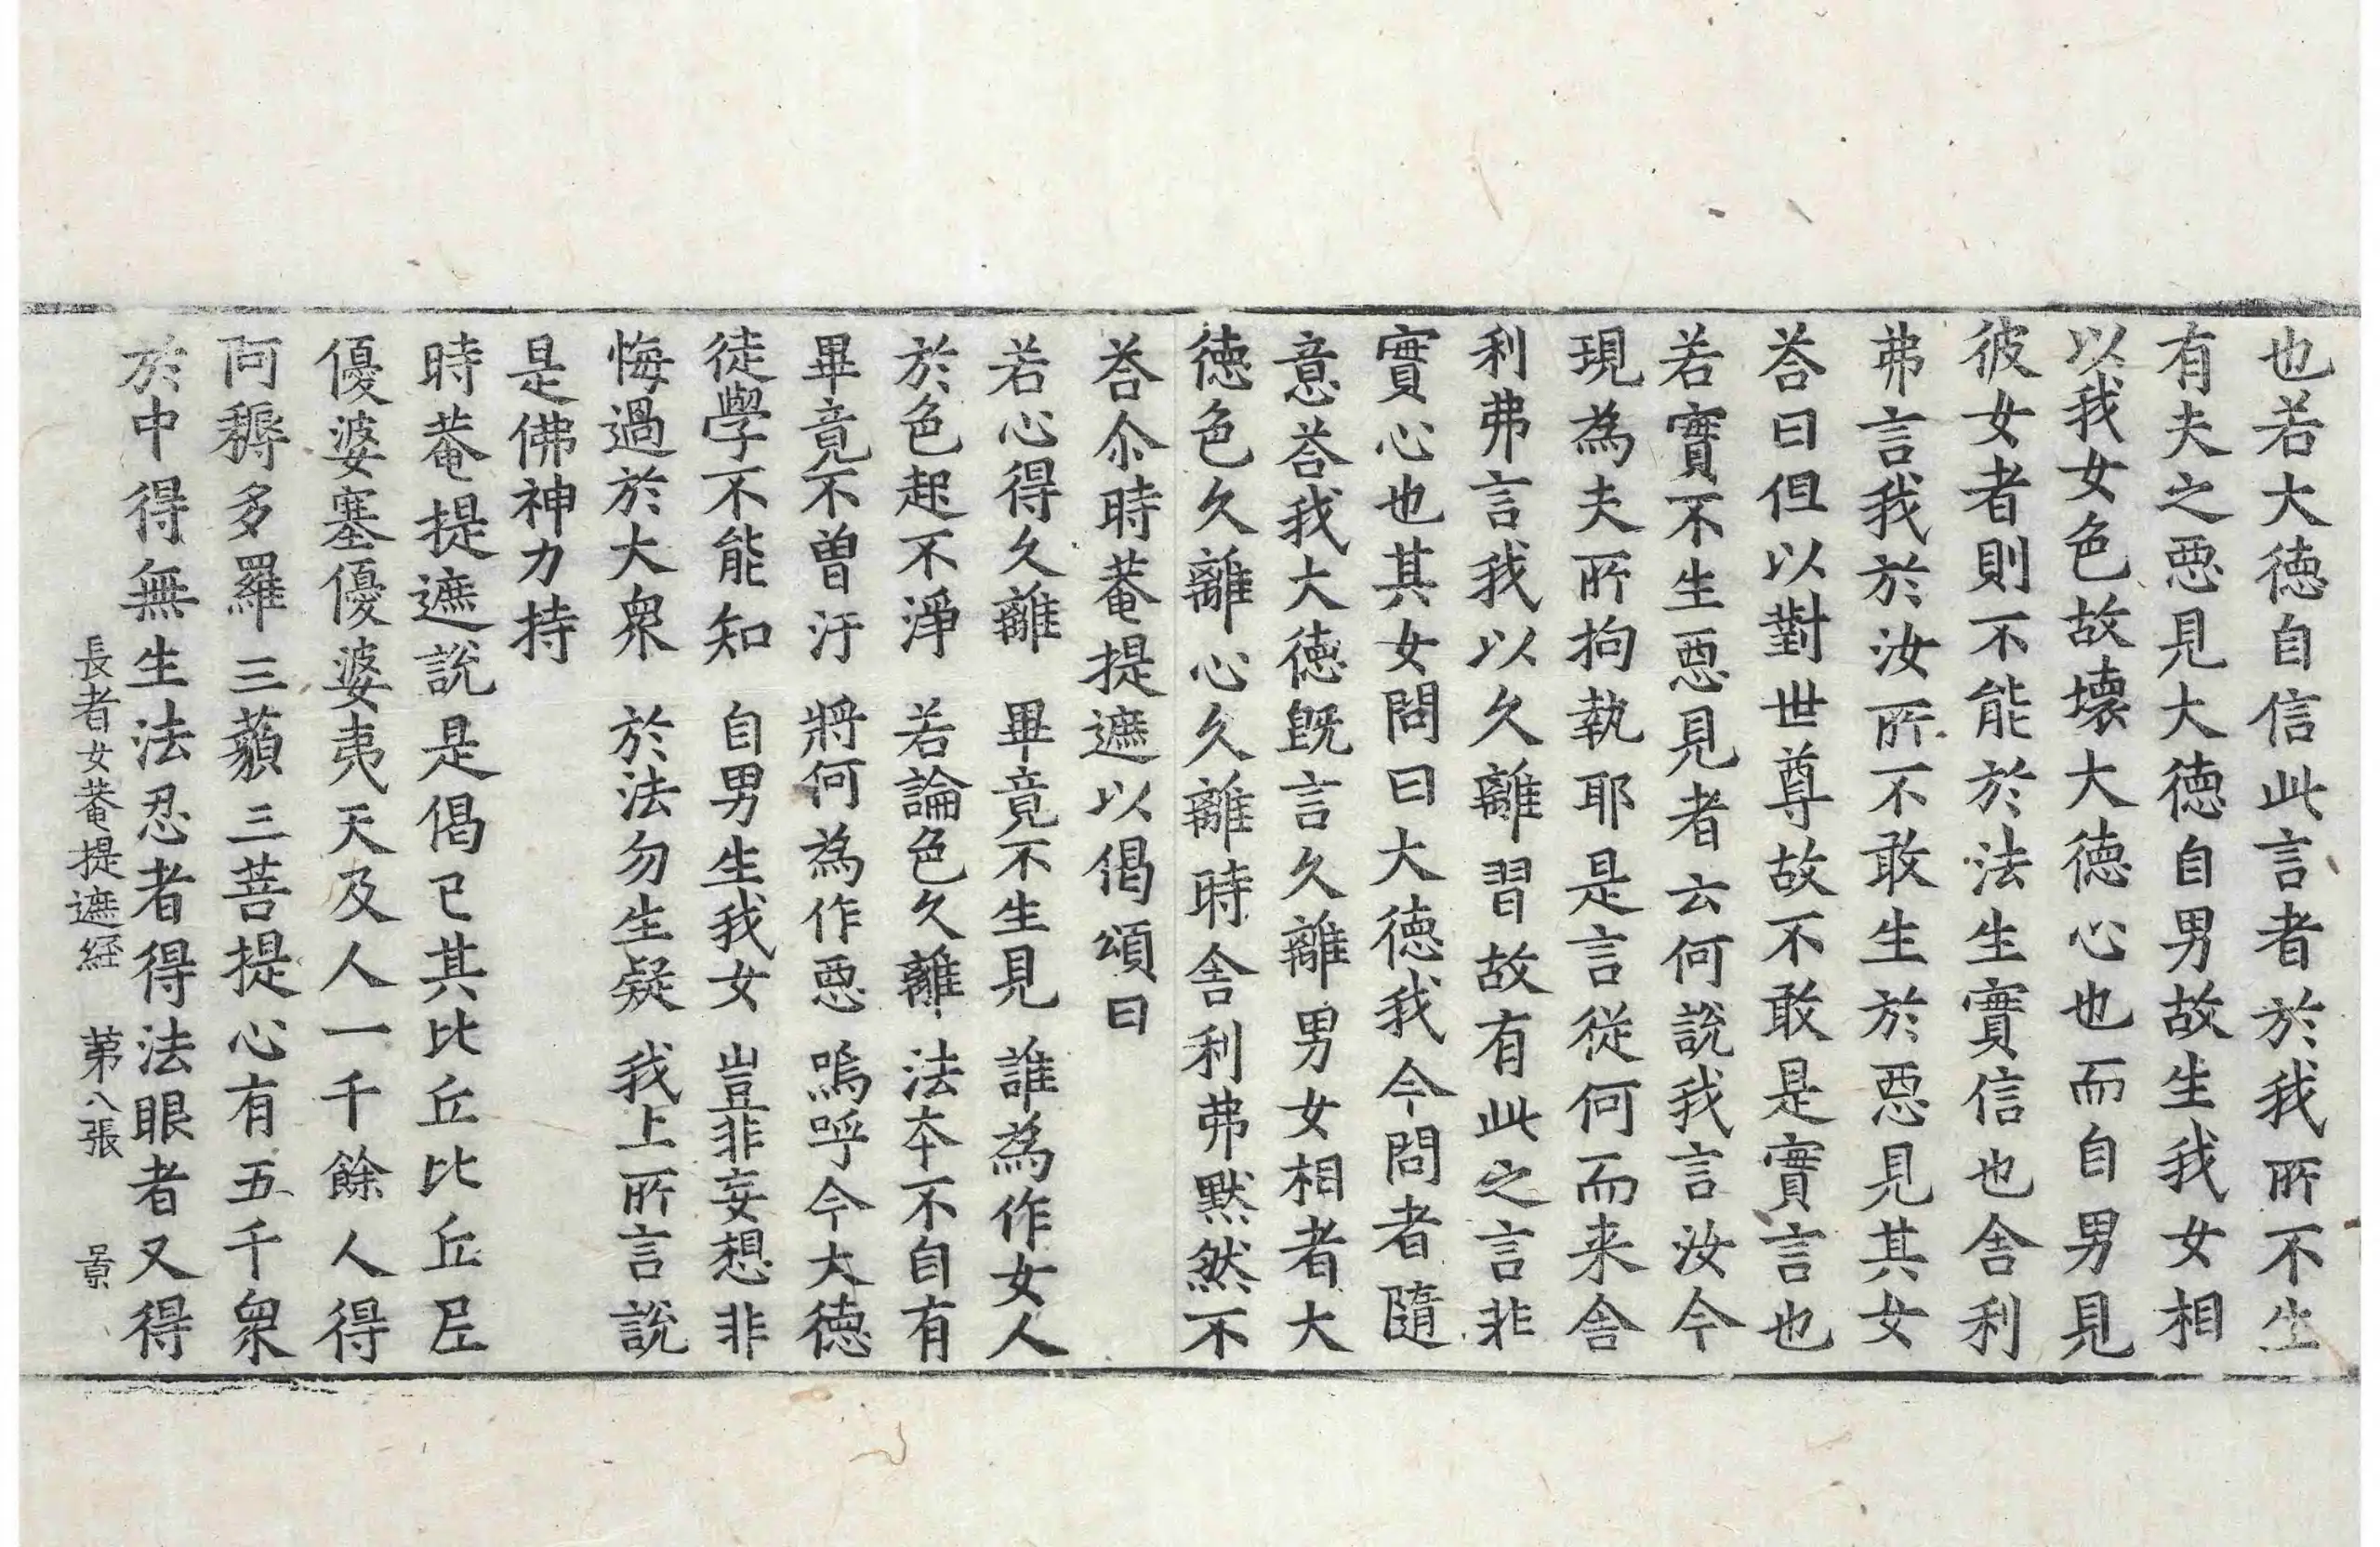 也若大徳自信此言者於我所不生
有夫之惡見大徳自男故生我女相
以我女色故壞大徳心也而自男見
彼女者則不能於法生實信也舎利
弗言我於汝所不敢生於惡見其女
荅曰但以對世尊故不敢是實言也
若實不生惡見者云何說我言汝今
現為夫所拘執耶是言從何而来舎
利弗言我以久離習故有此之言非
實心也其女問曰大徳我今問者隨
意荅我大徳旣言久離男女相者大
徳色久離心久離時舎利弗默然不
荅尒時菴提遮以偈頌曰
若心得久離　畢竟不生見　誰為作女人
於色起不淨　若論色久離　法本不自有
畢竟不曽汙　將何為作惡　嗚呼今大徳
徒學不能知　自男生我女　豈非妄想非
悔過於大衆　於法勿生疑　我上所言說
是佛神力持
時菴提遮說是偈已其比丘比丘尼
優婆塞優婆夷天及人一千餘人得
阿耨多羅三藐三菩提心有五千衆
於中得無生法忍者得法眼者又得
長者女菴提遮経　第八張　景